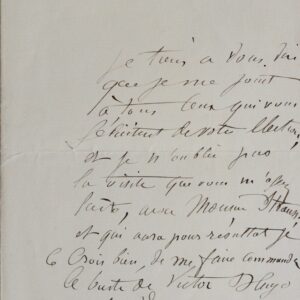 Je tiens à vous di
que je me joint
à tous ceux qui vous
félicitent de votre élection
et je n'oublie pas
la visite que vous m'a
faite, avec Monsieur
et qui aura pour résultat je
crois bien, de me faire command
le buste de Victor Hugo